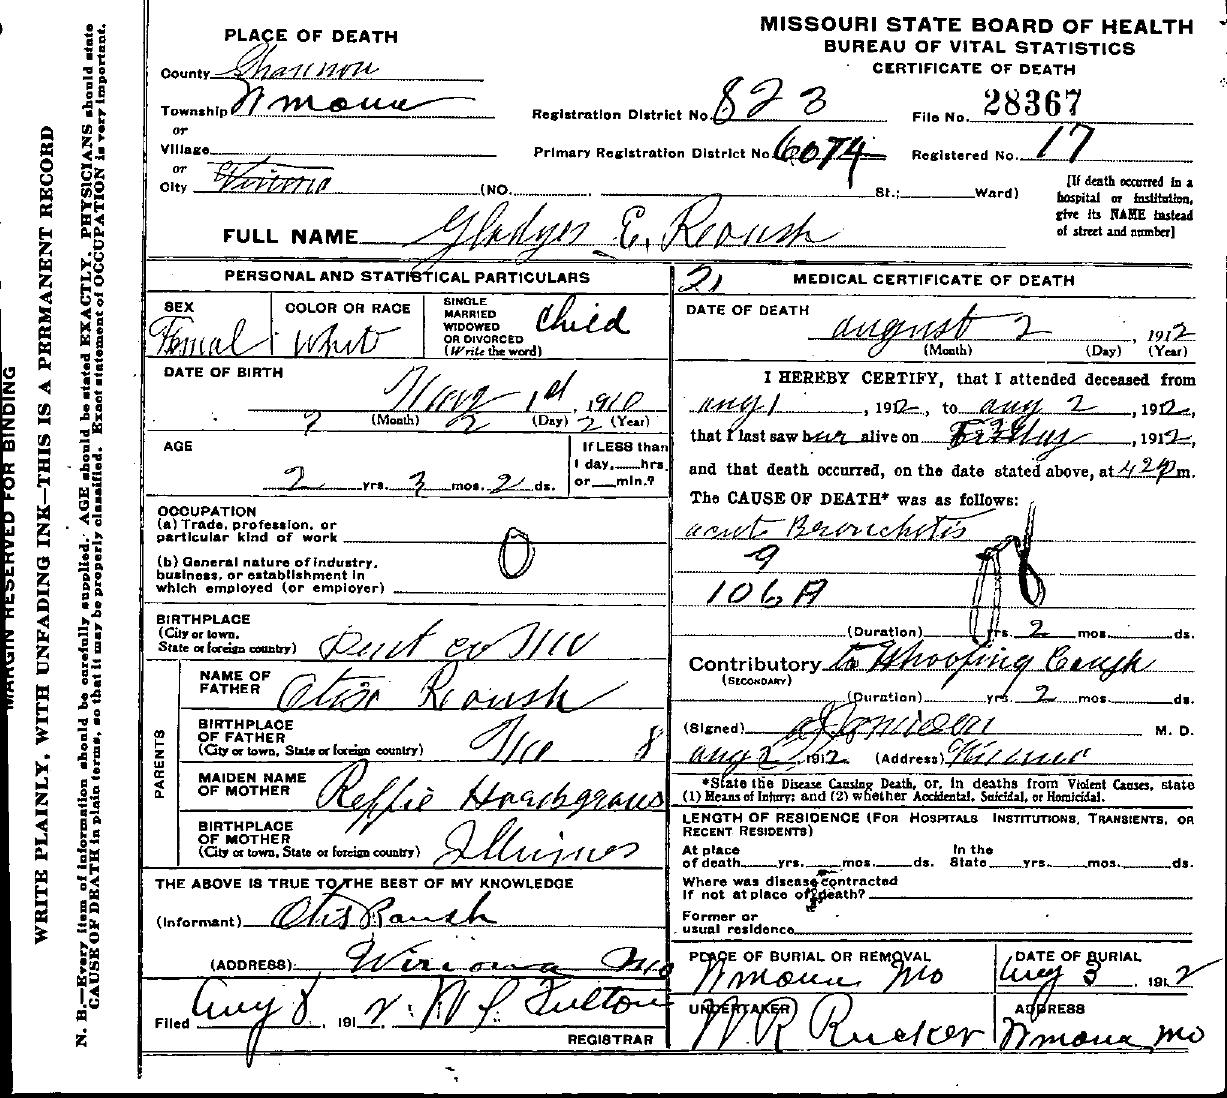 MISSOURI STATE BOARD OF HEALTH
BUREAU OF VITAL STATISTICS
CERTIFICATE OF DEATH
PLACE OF DEATH
County Shannon
Township Winona
or
Village
or
City Winona (NO. St.; Ward)
Registration District No. 823 File No. 28367
Primary Registration District No. 6074 Registered No. 17
[If death occurred in a
hospital or institution,
give its NAME instead
of street and number]
FULL NAME Gladyes E. Roush
PERSONAL AND STATISTICAL PARTICULARS
SEX
Femal
COLOR OR RACE
White
SINGLE
MARRIED
WIDOWED
OR DIVORCED
(Write the word)
Child
DATE OF BIRTH
1st, 1910
(Month) (Day) (Year)
2 2
AGE
2 yrs. 3 mos. 2 ds.
If LESS than
1 day, hrs.
or min.?
OCCUPATION
(a) Trade, profession, or
particular kind of work
(b) General nature of industry,
business, or establishment in
which employed (or employer)
0
BIRTHPLACE
(City or town,
State or foreign country)
Dent co Mo
PARENTS
NAME OF
FATHER
Otis Roush
BIRTHPLACE
OF FATHER
(City or town, State or foreign country)
Mo 8
MAIDEN NAME
OF MOTHER
Reffie
BIRTHPLACE
OF MOTHER
(City or town, State or foreign country)
Illinoes
THE ABOVE IS TRUE TO THE BEST OF MY KNOWLEDGE
(Informant) Otis Roush
(ADDRESS) Winona Mo
Filed Aug 8, 1912. Fulton
REGISTRAR
21
MEDICAL CERTIFICATE OF DEATH
DATE OF DEATH
august 2, 1912
(Month) (Day) (Year)
I HEREBY CERTIFY, that I attended deceased from
aug 1, 1912, to aug 2, 1912,
that I last saw her alive on, 1912,
and that death occurred, on the date stated above, at m.
The CAUSE OF DEATH* was as follows:
acute Bronchetis
9
106A
(Duration) yrs. 2 mos. ds.
Contributory to Whooping Cough
(SECONDARY)
(Duration) yrs. 2 mos. ds.
(Signed) M. D.
aug 2, 1912 (Address) Winona
*State the Disease Causing Death, or, in deaths from Violent Causes, state
(1) Means of Injury; and (2) whether Accidental, Suicidal, or Homicidal.
LENGTH OF RESIDENCE (For Hospitals Institutions, Transients, or
Recent Residents)
At place
of death yrs. mos. ds.
In the
State yrs. mos. ds.
Where was disease contracted
If not at place of death?
Former or
usual residence
PLACE OF BURIAL OR REMOVAL
Winona Mo
DATE OF BURIAL
Aug 3 1912
UNDERTAKER
W R Rucker
ADDRESS
Winona Mo
MARGIN RESERVED FOR BINDING
WRITE PLAINLY, WITH UNFADING INK—THIS IS A PERMANENT RECORD
N. B.—Every item of information should be carefully supplied. AGE should be stated EXACTLY. PHYSICIANS should state
CAUSE OF DEATH in plain terms, so that it may be properly classified. Exact statement of OCCUPATION is very important.